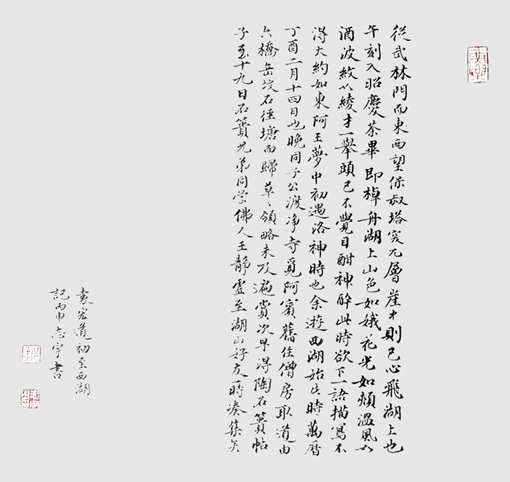 從武林門而東而望保叔塔突兀層崖中則已心飛湖上也
午刻入昭慶茶畢即棹舟湖上山色如娥花光如頰溫風如
酒波紋如綾才一舉頭已不覺目酣神醉此時欲下一語描寫不
得大約如東阿王夢中初遇洛神時也余遊西湖始此時萬曆
丁酉二月十四日也晚同子公渡淨寺覓阿賓舊住僧房取道由
六橋岳墳石徑塘而歸草〻領略未及遍賞次早得陶石簣帖
子至十九日石簣兄弟同學佛人王靜虛至湖山好友一時湊集矣
袁宏道初至西湖
記丙申志宇書